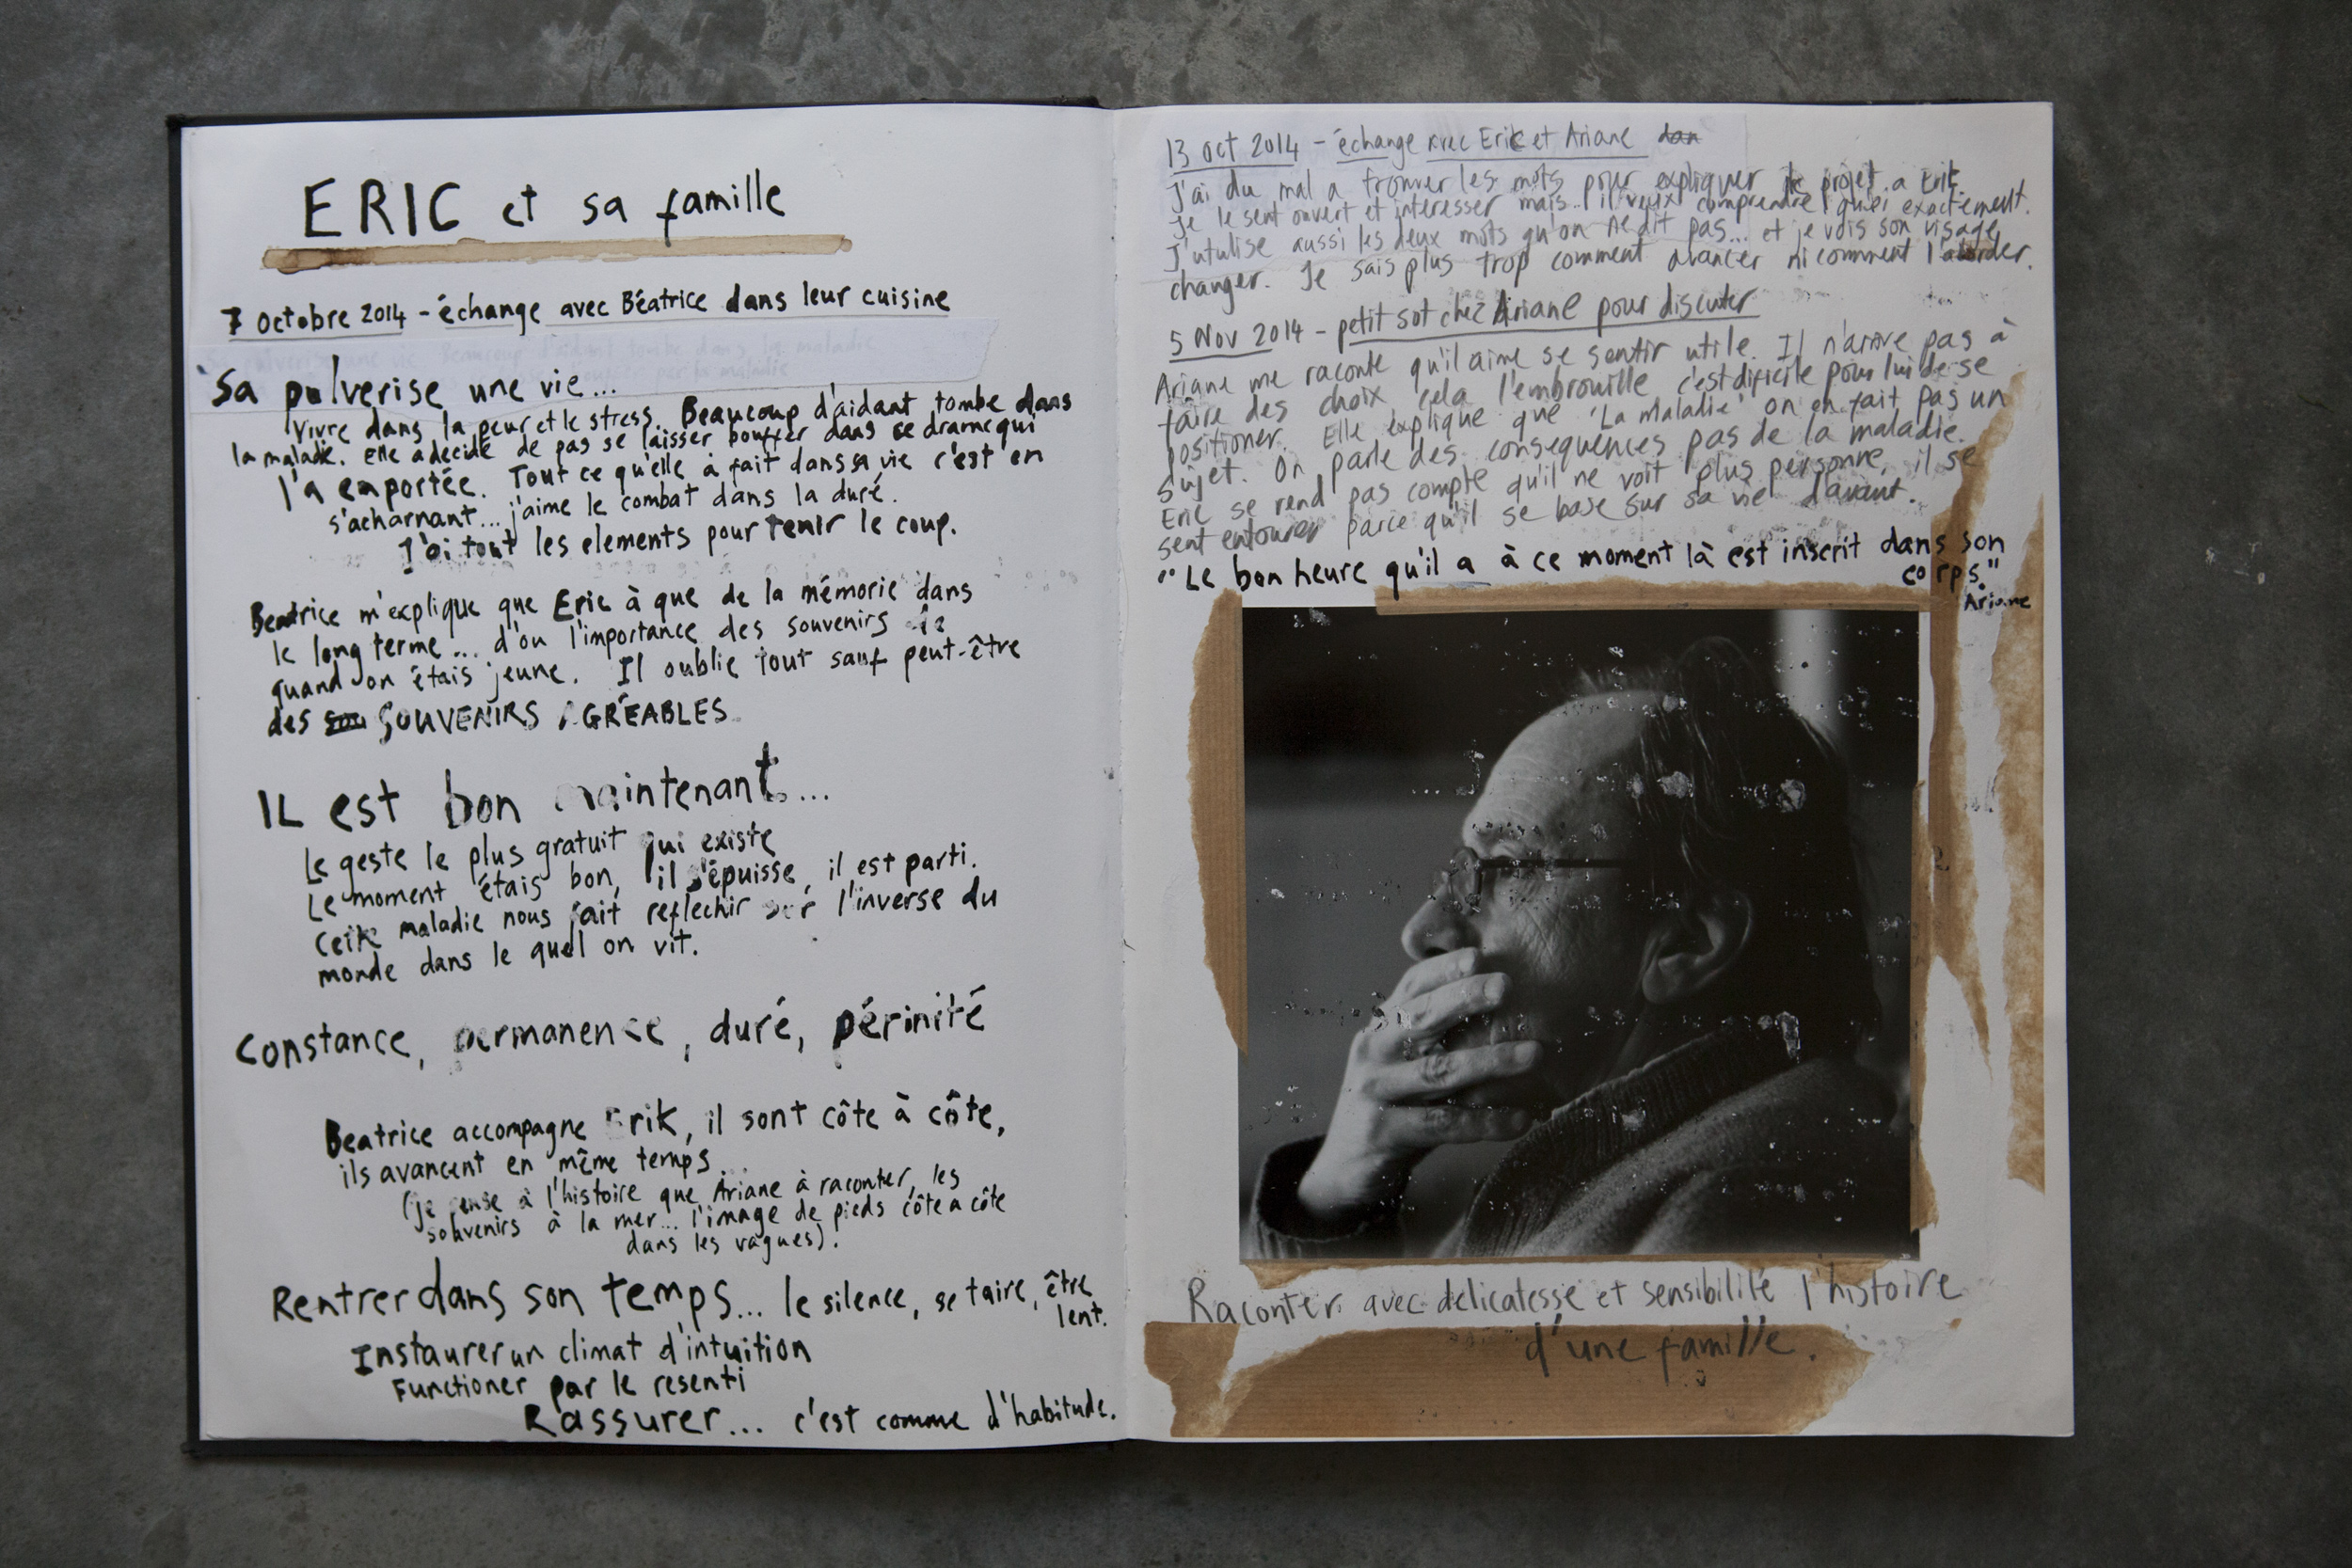 ERIC et sa famille
7 Octobre 2014 - échange avec Béatrice dans leur cuisine
Sa pulverise une vie...
Vivre dans la peur et le stress. Beaucoup d'aidant tombe dans
la maladie. Elle a décidé de pas se laisser bouffer dans ce drame qui
l'a emportée. Tout ce qu'elle à fait dans sa vie c'est en
s'acharnant... j'aime le combat dans la duré.
J'ai tout les elements pour tenir le coup.
Beatrice m'explique que Eric à que de la mémorie dans
le long terme... d'ou l'importance des souvenirs de
quand on étais jeune. Il oublie tout sauf peut-être
des sou SOUVENIRS AGRÉABLES
IL est bon maintenant...
Le geste le plus gratuit qui existe
Le moment étais bon, il s'épuisse, il est parti.
Cette maladie nous fait reflechir sur l'inverse du
monde dans le quel on vit.
Constance, permanence, duré, périnité
Beatrice accompagne Erik, il sont côte à côte,
ils avancent en même temps...
(je pense à l'histoire que Ariane à raconter, les
souvenirs à la mer... l'image de pieds côte a côte
dans les vagues).
Rentrer dans son temps... le silence, se taire, être
lent.
Instaurer un climat d'intuition
Functioner par le resenti
Rassurer... c'est comme d'habitude.
13 Oct 2014 - échange avec Erik et Ariane dan
J'ai du mal a trouver les mots pour expliquer le projet a Erik.
Je le sent ouvert et interesser mais... il veux comprendre quoi exactement.
J'utulise aussi les deux mots qu'on ne dit pas... et je vois son visage
changer. Je sais plus trop comment avancer ni comment l'aborder.
5 Nov 2014 - petit sot chez Ariane pour discuter
Ariane me raconte qu'il aime se sentir utile. Il n'arrive pas à
faire des choix cela l'embrouille c'est dificile pour lui de se
positioner. Elle explique que 'La Maladie' on en fait pas un
sujet. On parle des consequences pas de la maladie.
Eric se rend pas compte qu'il ne voit plus personne, il se
sent entourer parce qu'il se base sur sa vie d'avant.
"Le bonheure qu'il a à ce moment là est inscrit dans son
corps."
Ariane
Raconter avec delicatesse et sensibilité l'histoire
d'une famille.